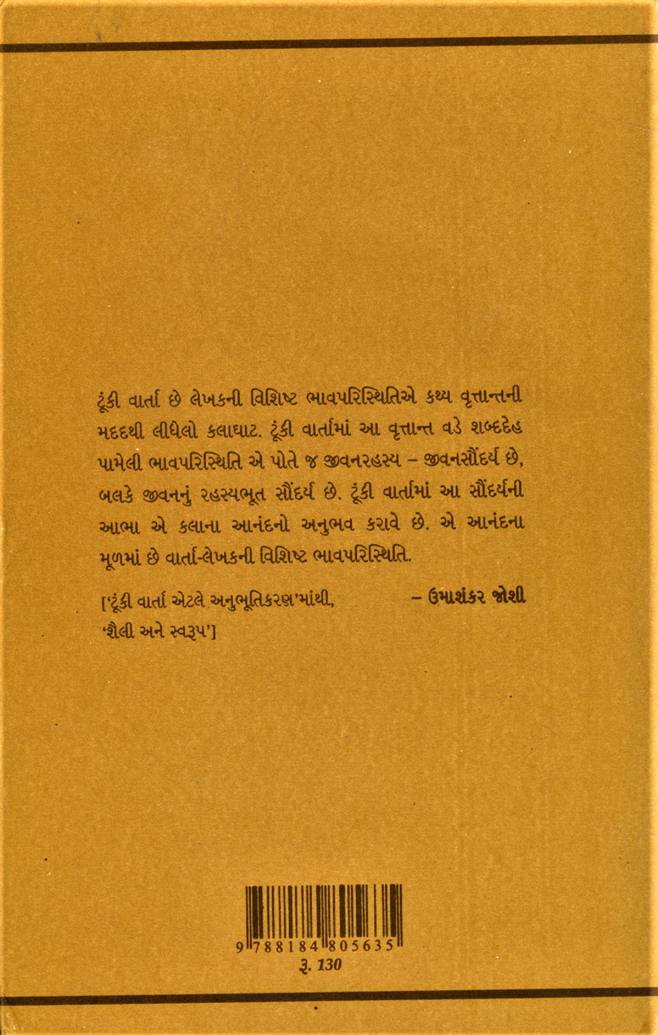 ટૂંકી વાર્તા છે લેખકની વિશિષ્ટ ભાવપરિસ્થિતિએ કથ્ય વૃત્તાન્તની
મદદથી લીધેલો કલાઘાટ. ટૂંકી વાર્તામાં આ વૃત્તાન્ત વડે શબ્દદેહ
પામેલી ભાવપરિસ્થિતિ એ પોતે જ જીવનરહસ્ય – જીવનસૌંદર્ય છે,
બલકે જીવનનું રહસ્યભૂત સૌંદર્ય છે. ટૂંકી વાર્તામાં આ સૌંદર્યની
આભા એ કલાના આનંદનો અનુભવ કરાવે છે. એ આનંદના
મૂળમાં છે વાર્તા-લેખકની વિશિષ્ટ ભાવપરિસ્થિતિ.
['ટૂંકી વાર્તા એટલે અનુભૂતિકરણ'માંથી, – ઉમાશંકર જોશી
'શૈલી અને સ્વરૂપ']
9 788184 805635
રૂ. 130